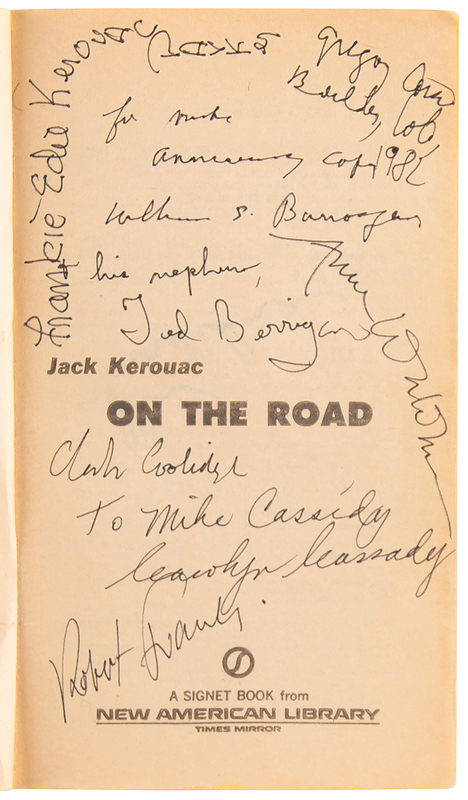 Frankie Edie Kerouac
Gregory Corso
Boulder, Colo
1982
for Mike
Anniversary copy
William S. Burroughs
his nephew,
Ted Berrigan
Anne Waldman
Jack Kerouac
ON THE ROAD
Clark Coolidge
To Mike Cassidy
Carolyn Cassady
Robert Frank
A SIGNET BOOK from
NEW AMERICAN LIBRARY
TIMES MIRROR